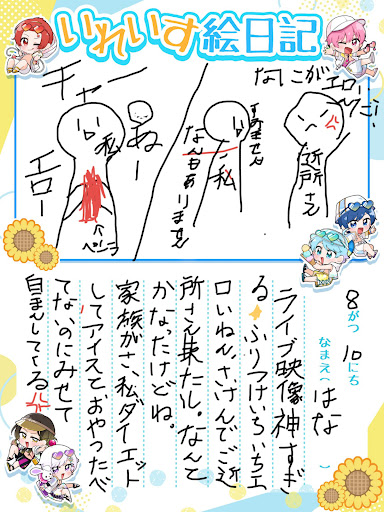 いれいす絵日記
キャー
私
あぁー
エロー
ペンラ
すみません
私
なんもありません
なにがエローーだ!
近所さん
8がつ10にち
なまえ( はな )
ライブ映像神すぎ
る✨ふりつけいちいちエ
ロいねん、さけんでご近
所さん集たし。なんて
かなったけどね。
家族がさ、私ダイエット
してアイスとおやつたべ
てないのにみせて
自まんしてくる💢